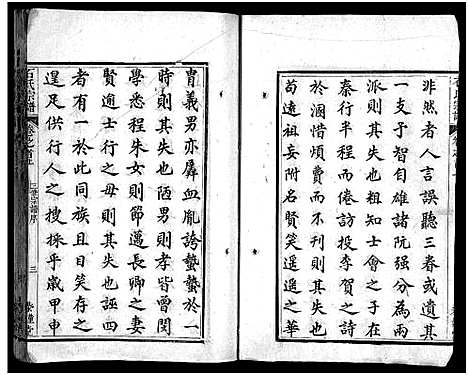 非然者人言誤聽三眷或遺其
一支于智自雄諸阮强分爲两
派則其失也粗知士會之子於
秦行半程而倦訪李賀之詩
於溷惜煩費而不列則其失也
苟遠祖妄附名賢笑遥遥之華
胄義男亦屬血胤誇蟄蟄於一
時則其失也陋男則孝皆曾閔
學悉程朱女則節邁長卿之妻
賢逾士行之母則其失也誣四
者有一於此同族且目笑存之
遑足供行人之搜採乎歲甲申
石氏宗譜
卷之首上
三